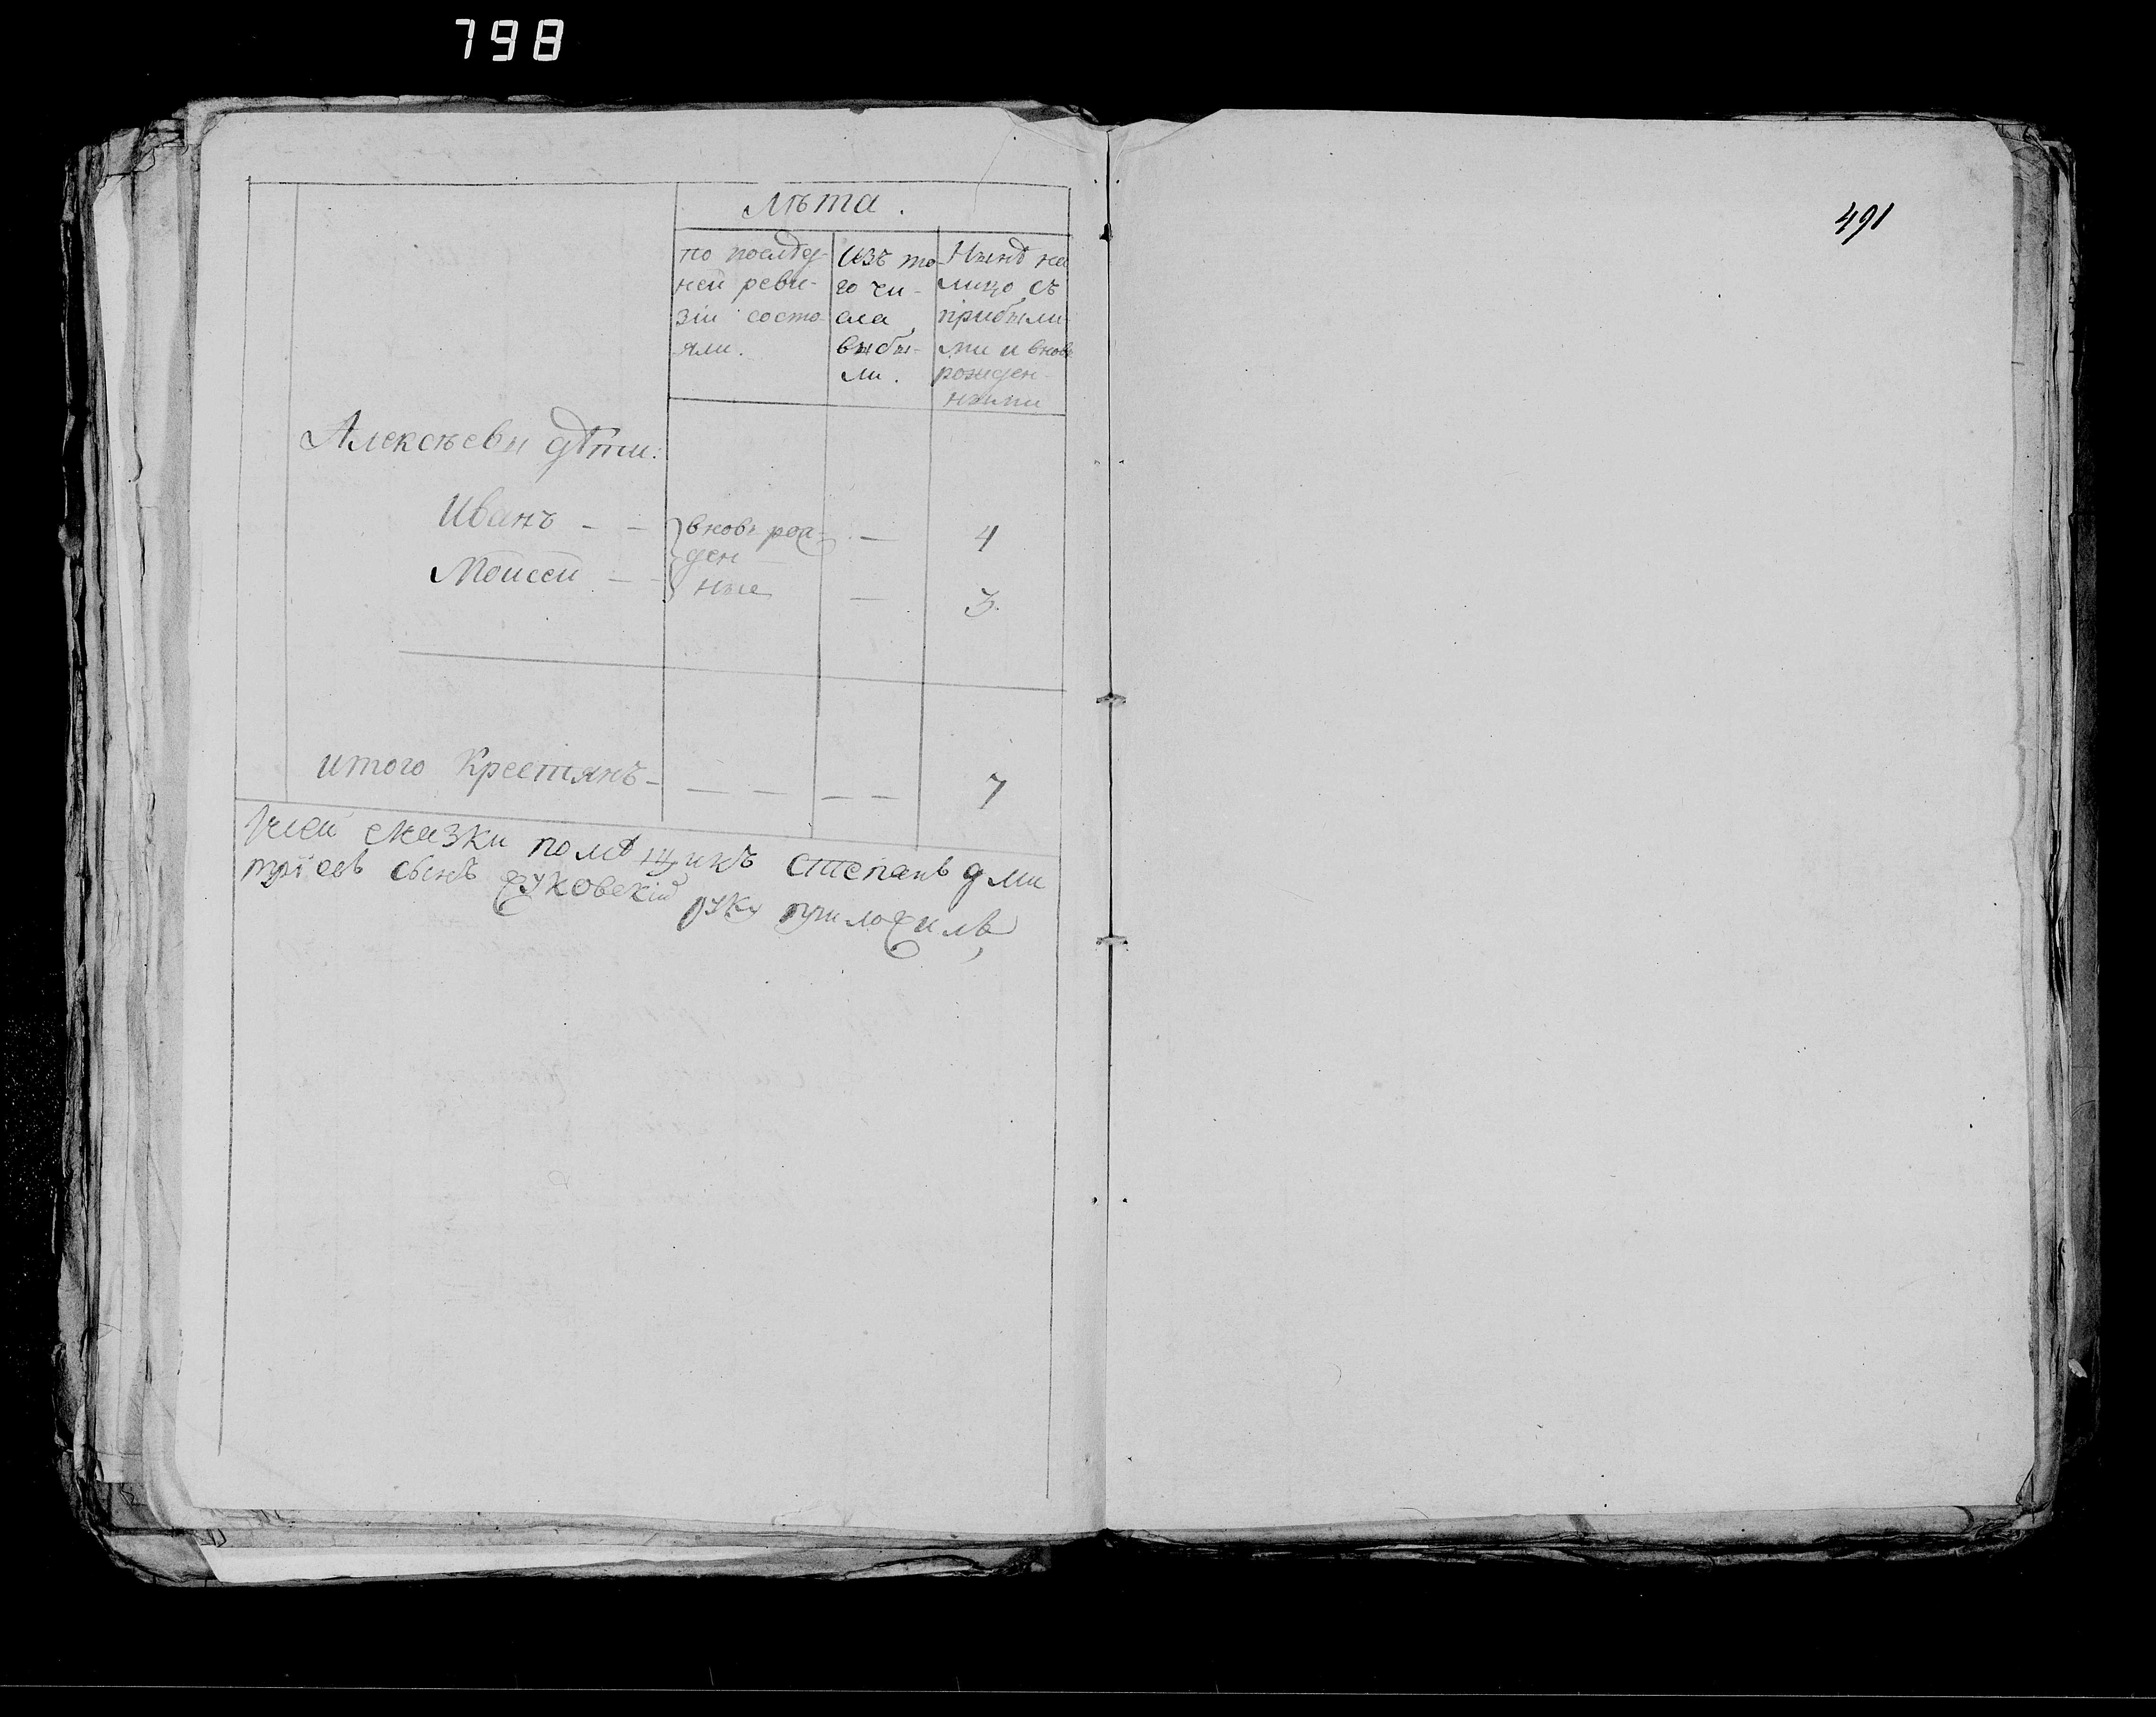 798
491
Лѣта.
по послѣд-
ней реви-
зіи состо-
яли.
Изъ то-
го чи-
сла
выбы-
ли.
Нынѣ на
лицо съ
прибылы-
ми и вновь
рожден-
ными
Алексѣевы дѣти:
Иванъ - - вновь рож- - 4
ден
Моисей - - ные - 3.
итого Крестянъ - - - - - 7
сказки помѣщикъ Степанъ дми
тріевъ сынъ Жуковскій руку приложилъ